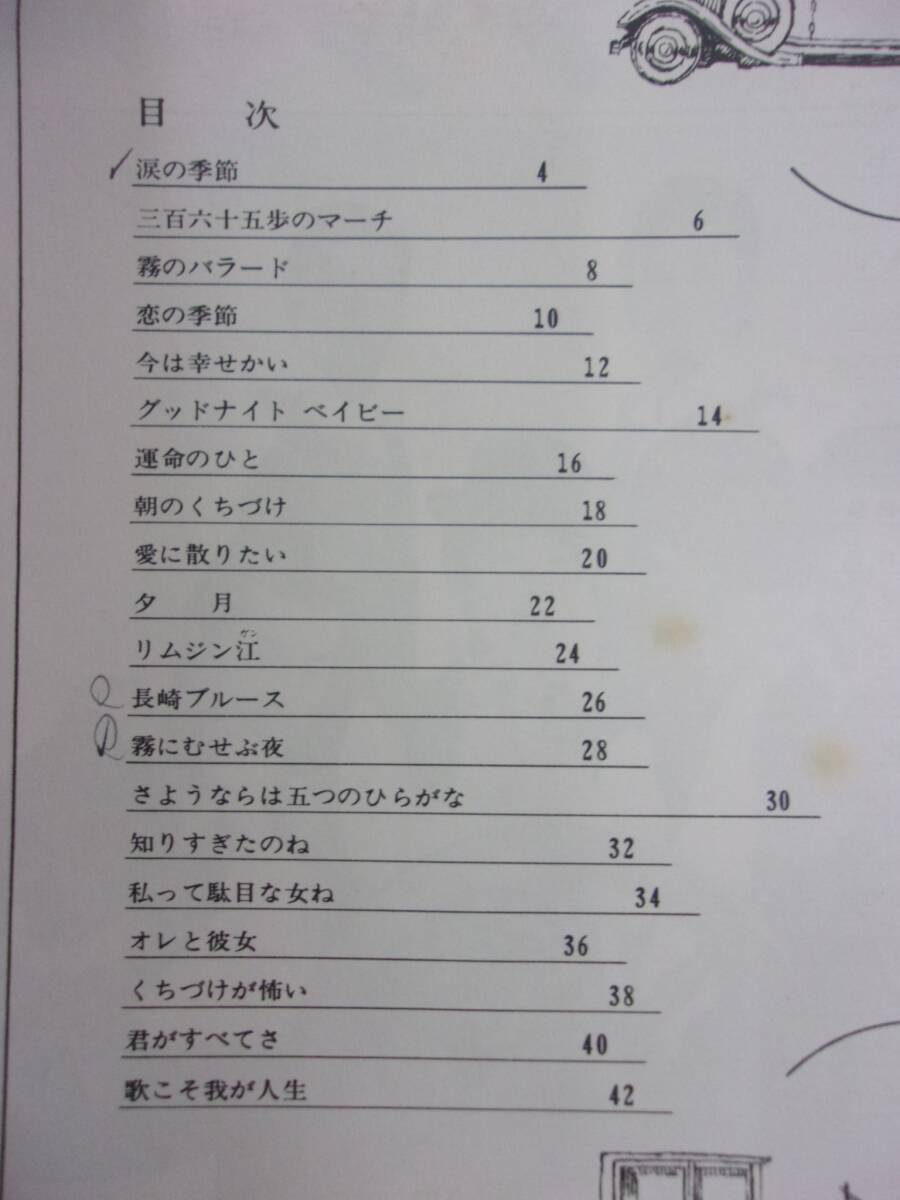 目 次
涙の季節 4
三百六十五歩のマーチ 6
霧のバラード 8
恋の季節 10
今は幸せかい 12
グッドナイト ベイビー 14
運命のひと 16
朝のくちづけ 18
愛に散りたい 20
夕 月 22
リムジン江 24
長崎ブルース 26
霧にむせぶ夜 28
さようならは五つのひらがな 30
知りすぎたのね 32
私って駄目な女ね 34
オレと彼女 36
くちづけが怖い 38
君がすべてさ 40
歌こそ我が人生 42